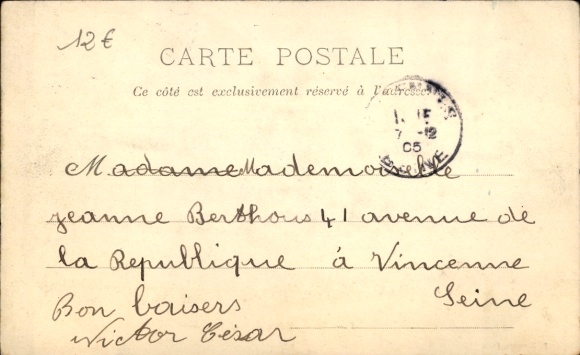 12€
CARTE POSTALE
Ce côté est exclusivement réservé à l'adresse.
M̶a̶d̶a̶m̶e̶ Mademoiselle
jeanne Berthous 41 avenue de
la Republique à Vincenne
Seine
Bon baisers
Victor César
7 -12
05